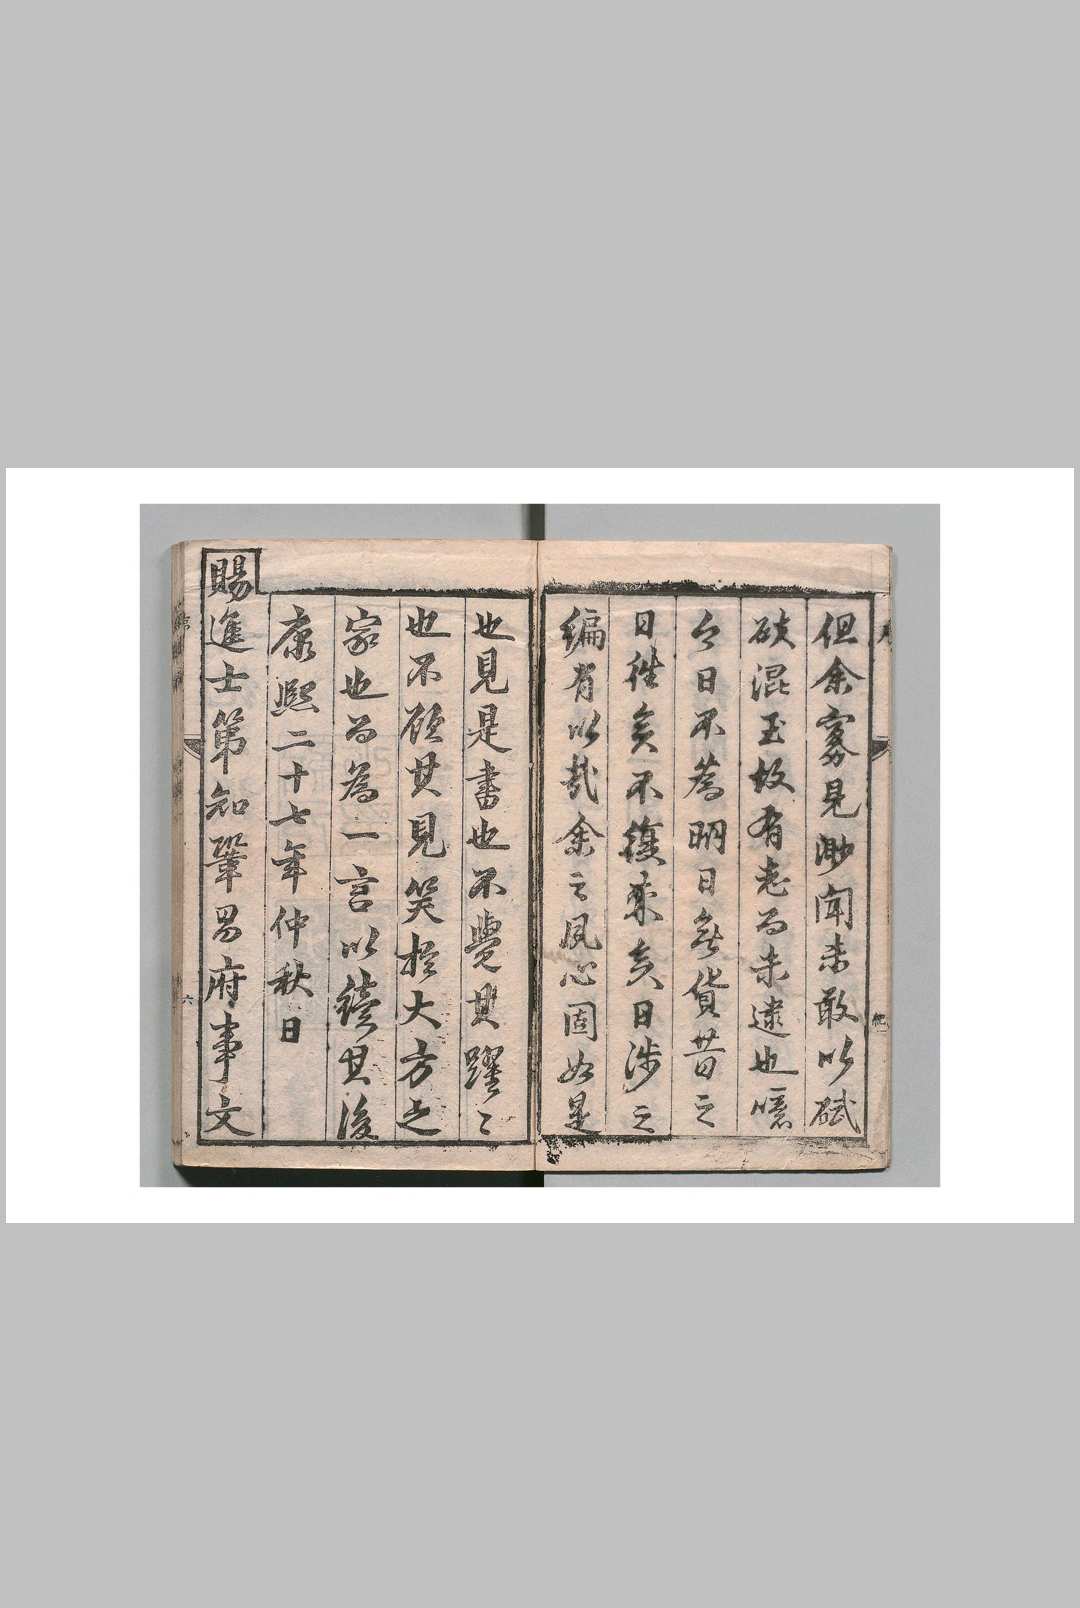 但余寡見渺聞未敢以碔
砆混玉故有志而未逮也噫
今日不為明日無貨昔之
日往矣不復來矣日涉之
編有以哉余之夙心固如是
也見是書也不覺其躍〻
也不顧其見笑於大方之
家也而為一言以續其後
康熙二十七年仲秋日
賜進士第知鞏昌府事文
六